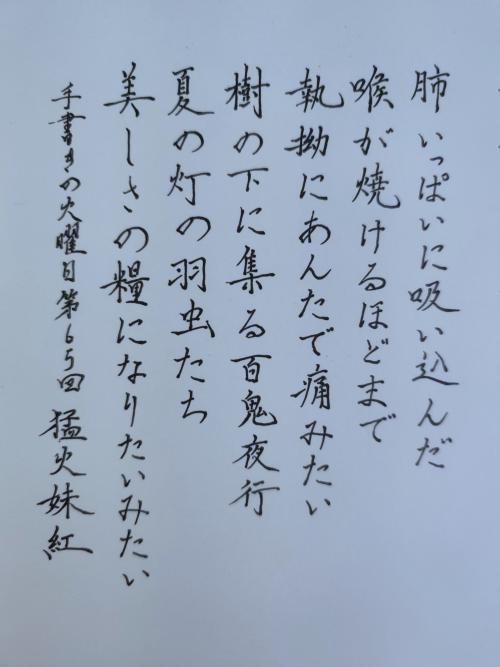 肺いっぱいに吸い込んだ
喉が焼けるほどまで
執拗にあんたで痛みたい
樹の下に集る百鬼夜行
夏の灯の羽虫たち
美しさの糧になりたいみたい
手書きの火曜日第65回 猛火妹紅